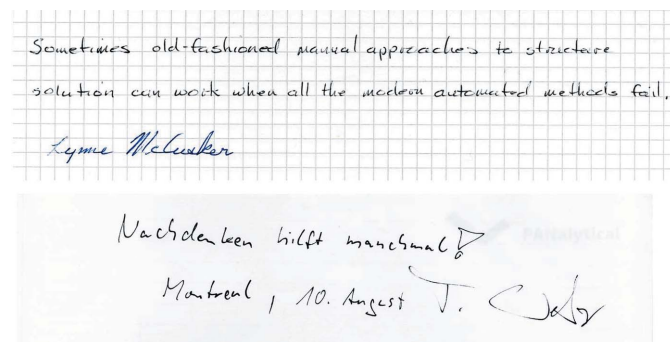 Sometimes old-fashioned manual approaches to structure
solution can work when all the modern automated methods fail.
Lynne McCusker
Nachdenken hilft manchmal!
PANalytical
Montreal, 10. August T.